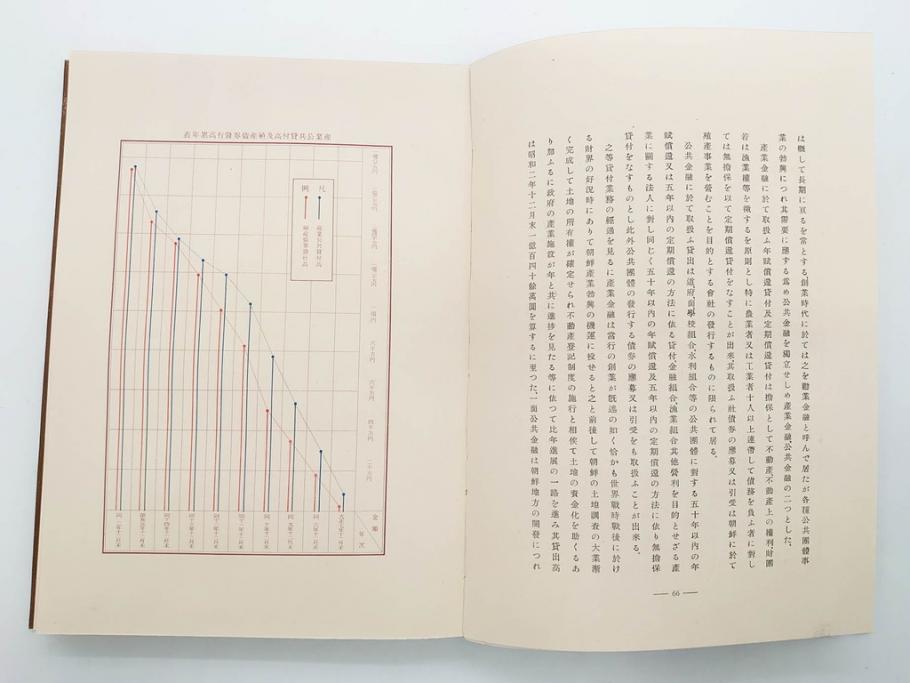 は概して長期に亙るを常とする、創業時代に於ては之を勸業金融と呼んで居たが各種公共團體事
業の勃興につれ其需要に應ずる爲め公共金融を獨立せしめ產業金融、公共金融の二つとした、
產業金融に於て取扱ふ年賦償還貸付及定期償還貸付は擔保として不動產、不動產上の權利、財團
若は漁業權等を徴するを原則とし特に農業者又は工業者十人以上連帶して債務を負ふ者に對し
ては無擔保を以て定期償還貸付をなすことが出來、其取扱ふ社債券の應募又は引受は朝鮮に於て
殖產事業を營むことを目的とする會社の發行するものに限られて居る。
公共金融に於て取扱ふ貸出は道、府、面、學校組合、水利組合等の公共團體に對する五十年以內の年
賦償還又は五年以內の定期償還の方法に依る貸付、金融組合、漁業組合其他營利を目的とせざる產
業に關する法人に對し同じく五十年以內の年賦償還及五年以內の定期償還の方法に依り無擔保
貸付をなすものとし此外公共團體の發行する債券の應募又は引受をも取扱ふことが出來る。
之等貸付業務の經過を見るに產業金融は當行の創業が旣述の如く恰かも世界戰時戰後に於け
る財界の好況時にありて朝鮮產業勃興の機運に投せると之と前後して朝鮮の土地調査の大業漸
く完成して土地の所有權が確定せられ不動產登記制度の施行と相俟て土地の資金化を助くるあ
り加ふるに政府の產業施設が年と共に進捗を見たる等に依つて比年進展の一路を進み其貸出高
は昭和二年十二月末一億百四十餘萬圓を算するに至つた、一面公共金融は朝鮮地方の開發につれ
— 66 —
表年累高行發券債產殖及高付貸共公業產
凡例
產業公共貸付高
金額
年次